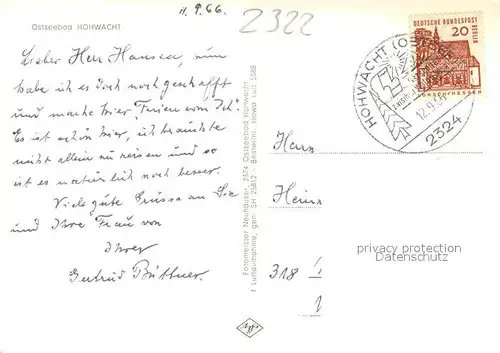 11.9.66.
2322
Ostseebad HOHWACHT
Lieber Herr Hansen, nun
habe ich es doch noch geschafft
und mache hier "Ferien vom Ich".
Es ist schön hier, ich brauchte
nicht allein zu reisen und so
ist es natürlich noch besser.
Viele gute Grüsse an Sie
und Ihre Frau von
Ihrer
Gertrud Büttner.
Fotomeister Neuhauser, 2324 Ostseebad Hohwacht
Luftaufnahme, gen. SH 25812 - Bestellnr. Howa Luf. 5568
DEUTSCHE BUNDESPOST
BERLIN
20
HOHWACHT (OSTSEE)
12.9.66
2324
Herrn
Heinr
318
privacy protection
Datenschutz